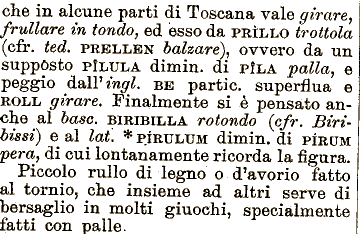 che in alcune parti di Toscana vale girare,
frullare in tondo, ed esso da PRÌLLO trottola
(cfr. ted. PRELLEN balzare), ovvero da un
suppòsto PÌLULA dimin. di PÌLA palla, e
peggio dall'ingl. BE partic. superflua e
ROLL girare. Finalmente si è pensato an-
che al basc. BIRIBILLA rotondo (cfr. Biri-
bissi) e al lat. *PÍRULUM dimin. di PÍRUM
pera, di cui lontanamente ricorda la figura.
Piccolo rullo di legno o d'avorio fatto
al tornio, che insieme ad altri serve di
bersaglio in molti giuochi, specialmente
fatti con palle.